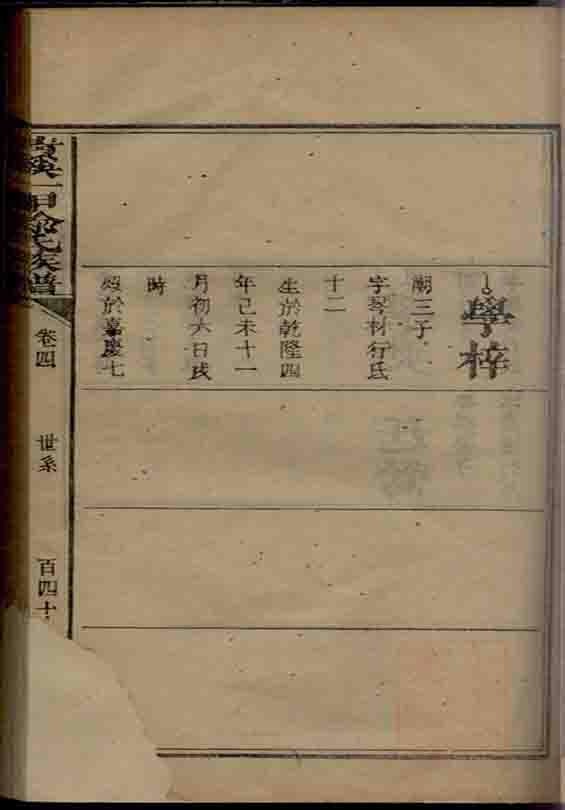 學梓
潮三子
字琴材行氐
十二
生於乾隆四
年己未十一
月初六日戌
時
歿於嘉慶七
氏族譜
卷四
世系
百四十